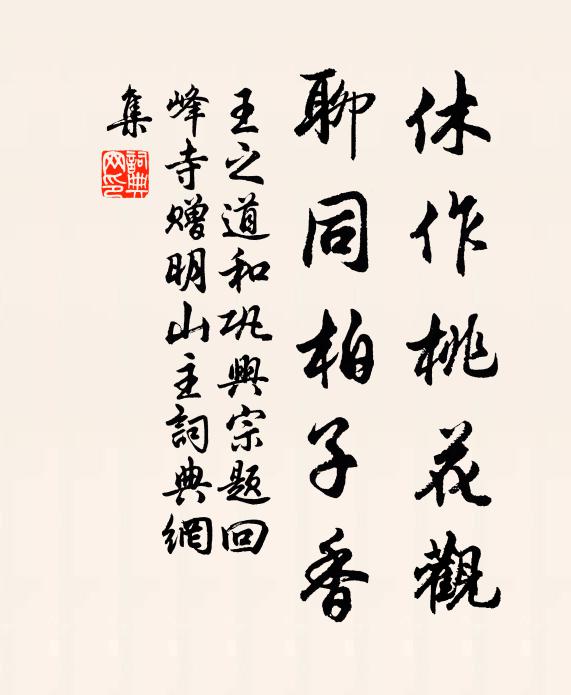 休作桃花觀
聊同柏子香
王之道和巩興宗題回
峰寺贈明山主詞典網
集
詞典網印